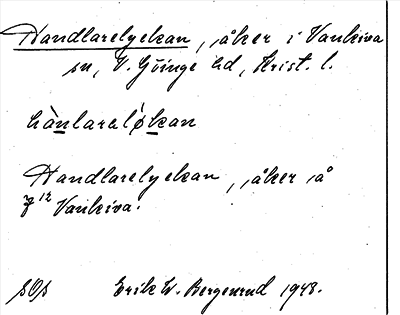 Handlarelyckan, åker i Vankiva
sn, V. Göinge hd, Krist. l.
hànlareló̱kan
Handlarelyckan, åker å
7¹² Vankiva.
Erik W. Bergenrud 1948.